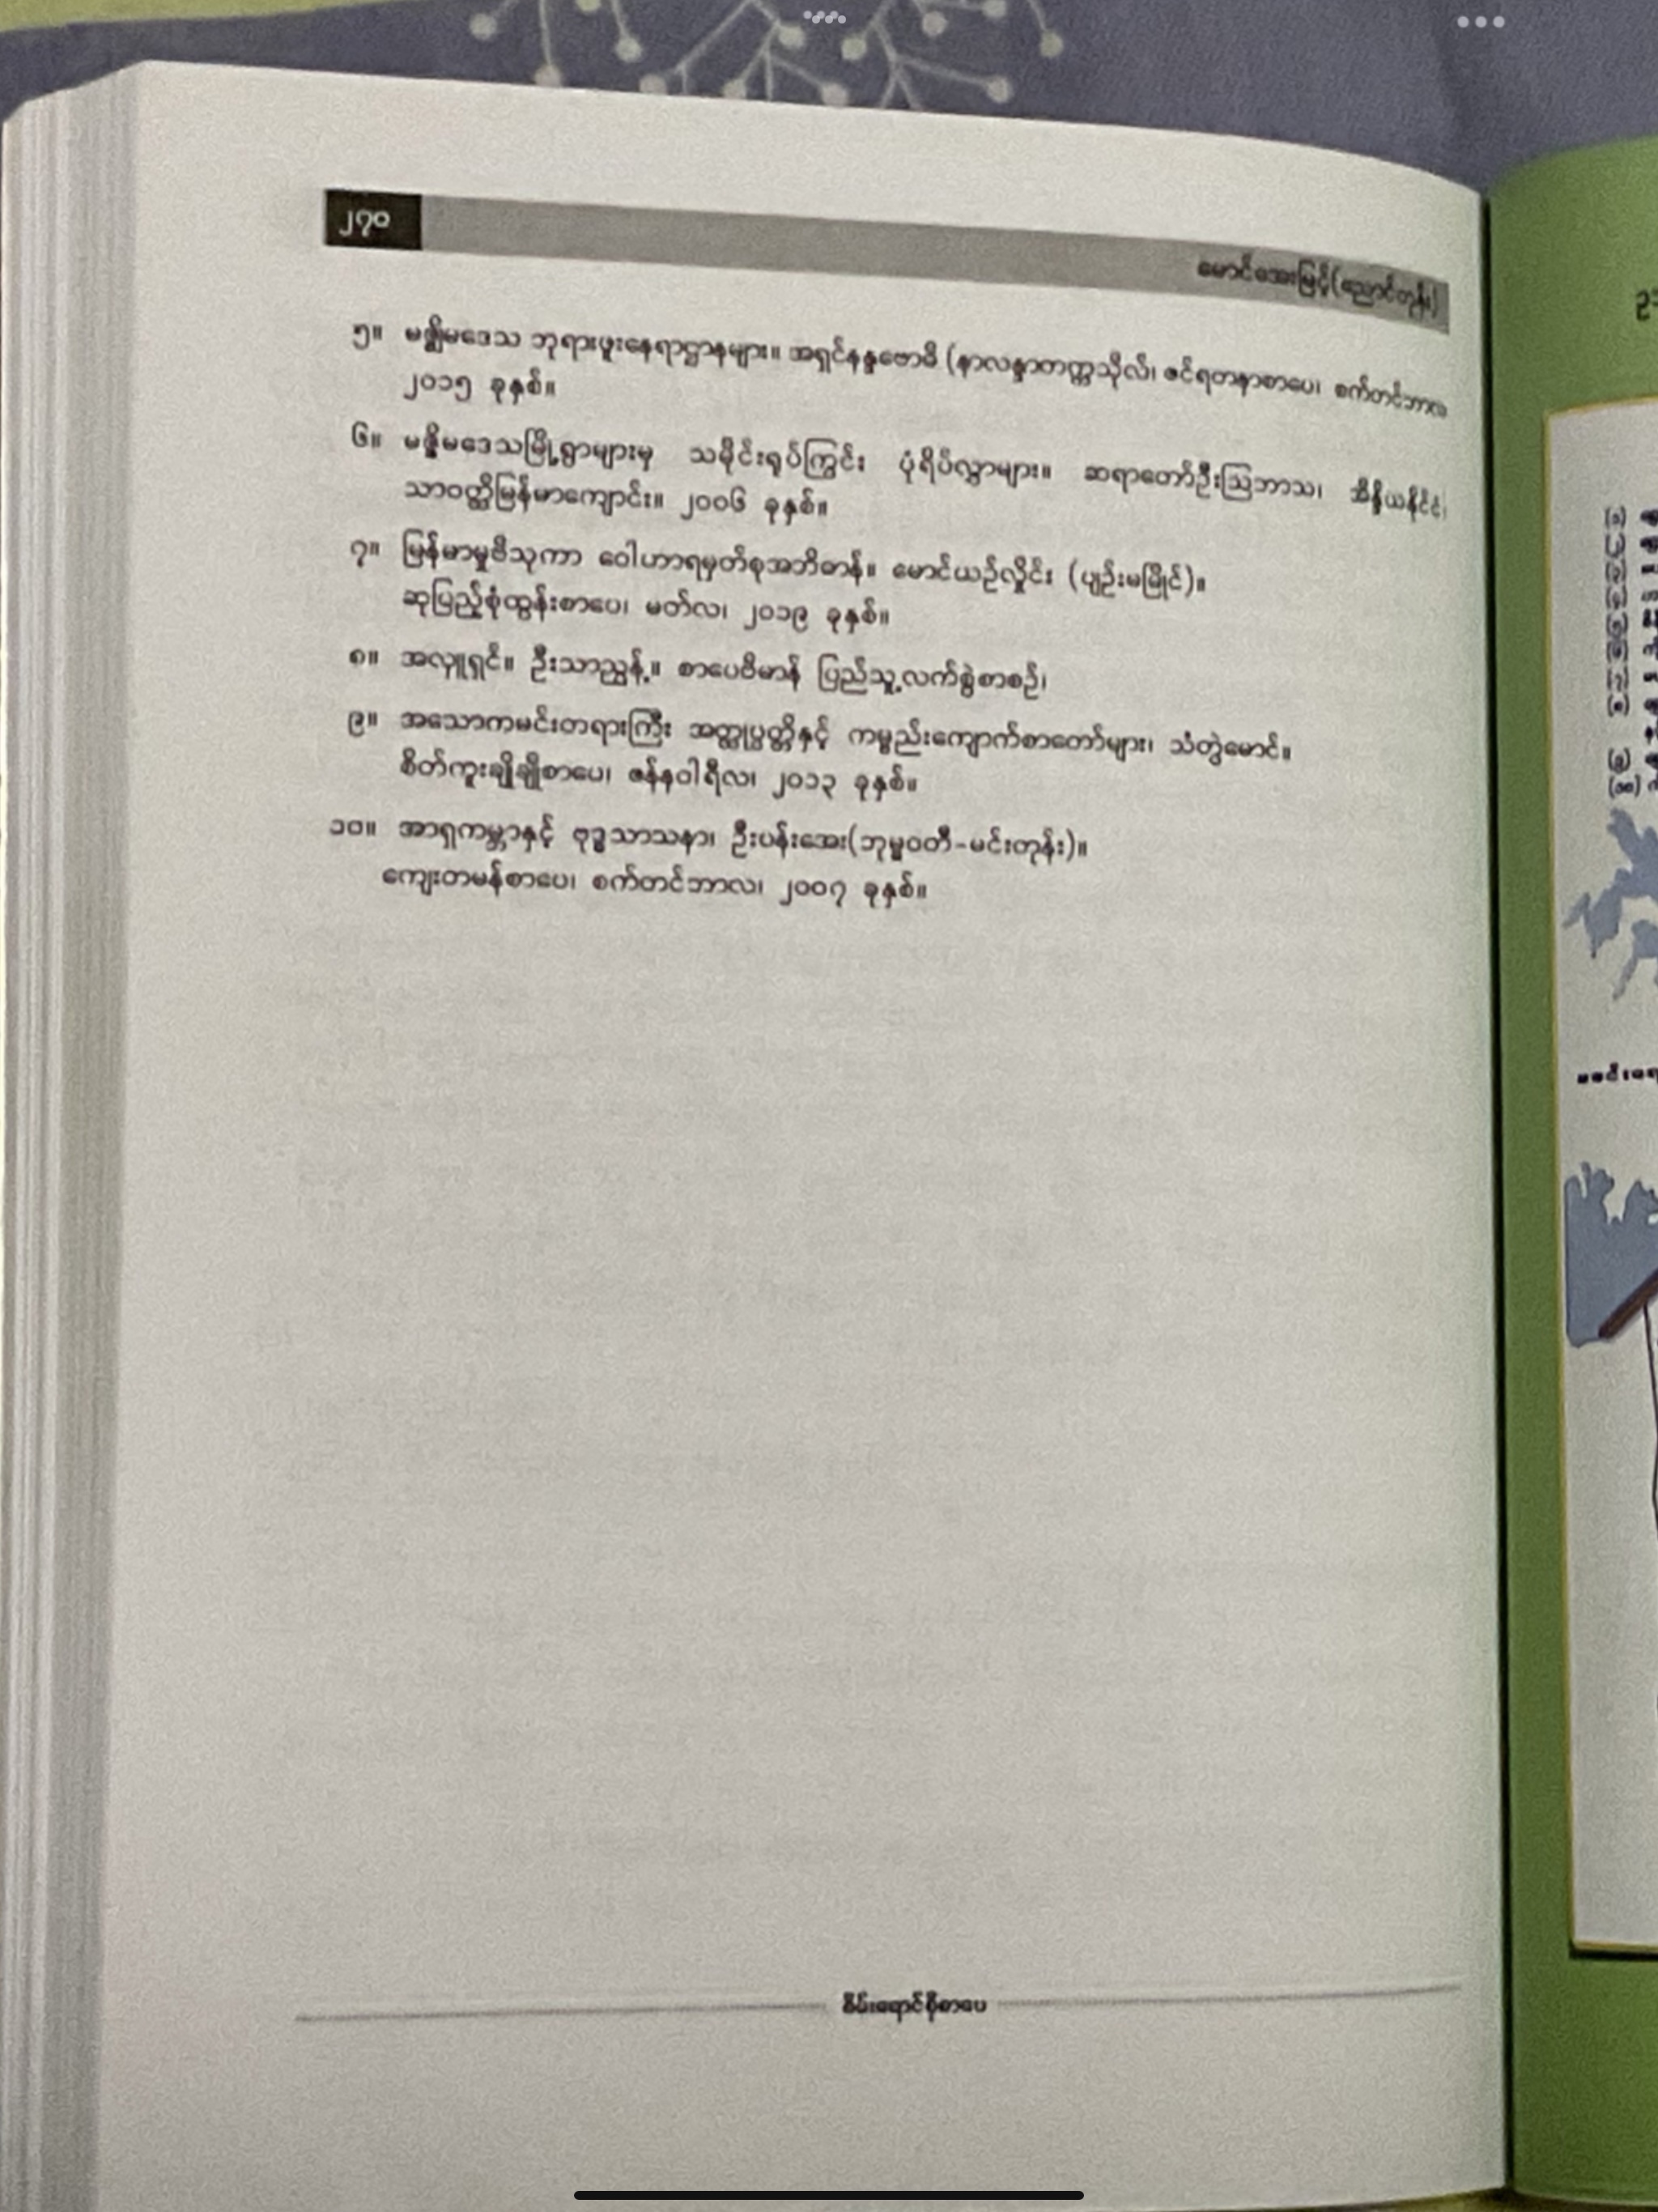 ၂၇၀
မောင်အေးမြင့်(ညောင်တုန်း)
၅။ မဇ္ဈိမဒေသ ဘုရားဖူးနေရာဌာနများ။ အရှင်နန္ဒဗောဓိ (နာလန္ဒာတက္ကသိုလ်၊ ဇင်ရတနာစာပေ၊ စက်တင်ဘာလ
၂၀၁၅ ခုနှစ်။
၆။ မဇ္ဈိမဒေသမြို့ရွာများမှ သမိုင်းရုပ်ကြွင်း ပုံရိပ်လွှာများ။ ဆရာတော်ဦးဩဘာသ၊ အိန္ဒိယနိုင်ငံ၊
သာဝတ္ထိမြန်မာကျောင်း။ ၂၀၀၆ ခုနှစ်။
၇။ မြန်မာမှုဗိသုကာ ဝေါဟာရမှတ်စုအဘိဓာန်။ မောင်ယဉ်လှိုင်း (ပျဉ်းမမြိုင်)။
ဆုပြည့်စုံထွန်းစာပေ၊ မတ်လ၊ ၂၀၁၉ ခုနှစ်။
၈။ အလှူရှင်။ ဦးသာညွန့်။ စာပေဗိမာန် ပြည်သူ့လက်စွဲစာစဉ်၊
၉။ အသောကမင်းတရားကြီး အတ္ထုပ္ပတ္တိနှင့် ကမ္ပည်းကျောက်စာတော်များ၊ သံတွဲမောင်။
စိတ်ကူးချိုချိုစာပေ၊ ဇန်နဝါရီလ၊ ၂၀၁၃ ခုနှစ်။
၁၀။ အာရှကမ္ဘာနှင့် ဗုဒ္ဓသာသနာ၊ ဦးပန်းအေး(ဘုမ္မဝတီ-မင်းတုန်း)။
ကျေးတမန်စာပေ၊ စက်တင်ဘာလ၊ ၂၀၀၇ ခုနှစ်။
စိမ်းရောင်စိုစာပေ